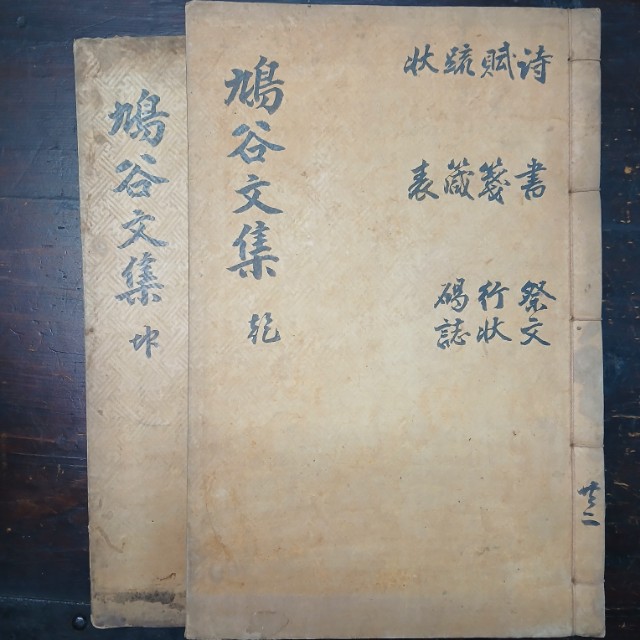 詩 賦 疏 状
書 箋 箴 表
祭文
行状
碣誌
鳩谷文集 乾
鳩谷文集 坤
共二